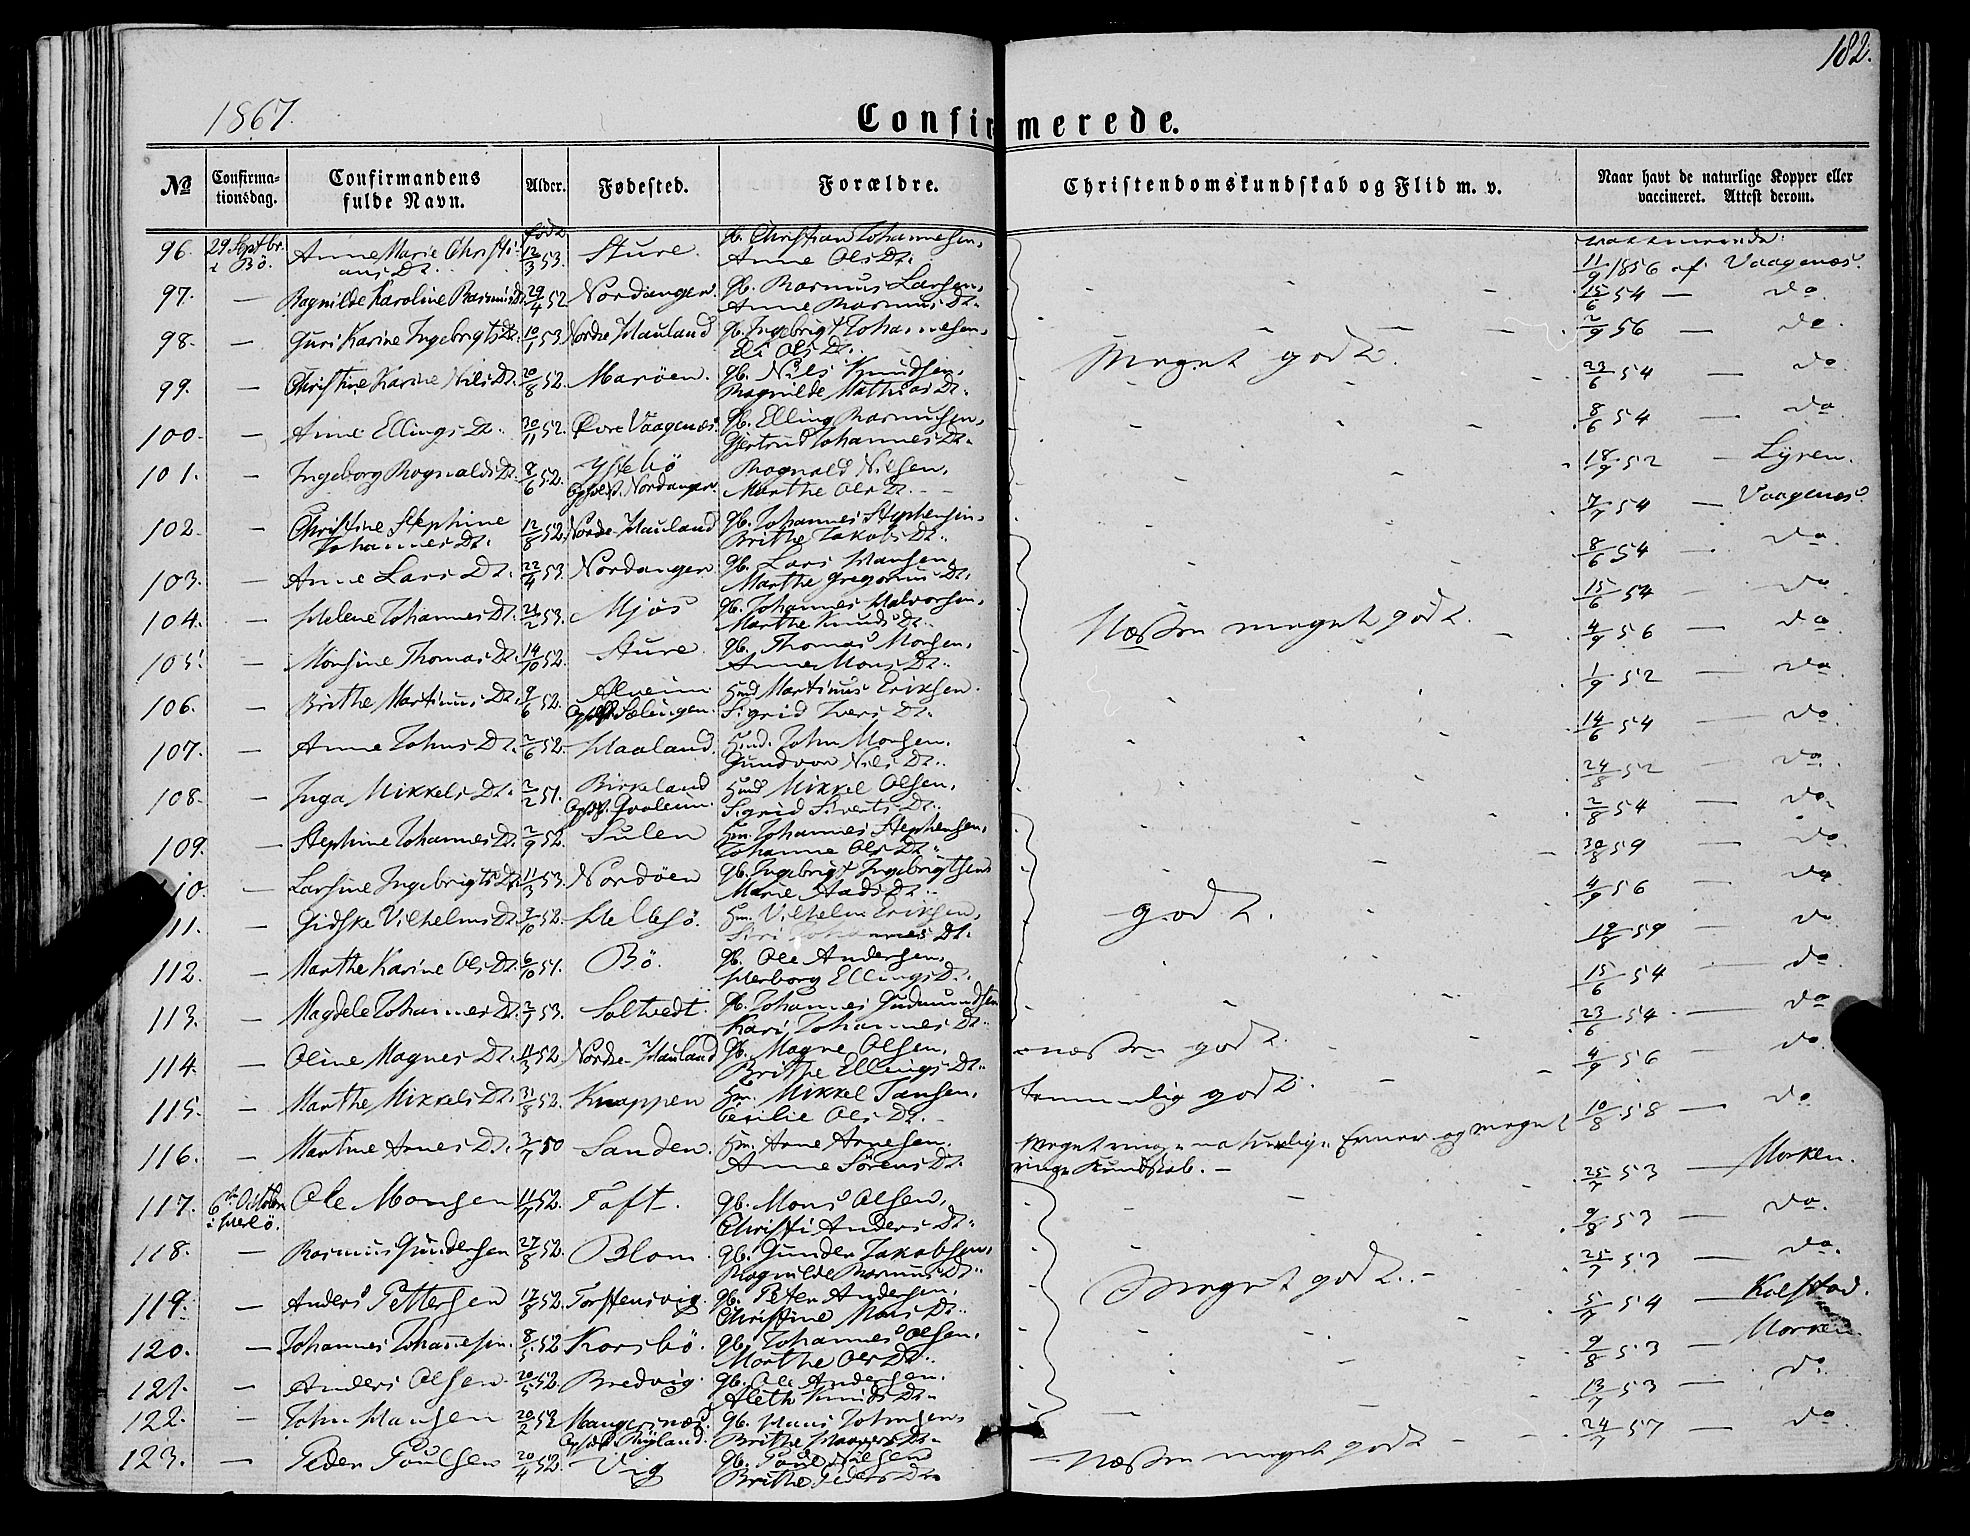 182.
1867.
Confirmerede.
No
Confirma-
tionsdag.
Confirmandens
fulde Navn.
Alder.
Fødested.
Forældre.
Christendomskundskab og Flid m. v.
Naar havt de naturlige Kopper eller
vaccineret. Attest derom.
96. 29 Septbr. i Bö. Anne Marie Christi- 12/3 53. Sture. gb. Christian Johannesen,
ans Dt. Anne Ols Dt. 11/9 1856 af Vaagenæs.
97. — Ragnilde Karoline Rasmus Dt. 29/4 52 Nordanger. gb. Rasmus Larsen,
Anne Rasmus Dt. 15/6 54 — do.
98. — Guri Karine Ingebrigts Dt. 10/1 53 Nordre Hauland gb. Ingebrigt Johannesen,
Eli Ols Dt. 2/9 56 — do.
Meget godt.
99. — Christine Karine Nils Dt. 20/8 52. Maröen. gb. Nils Knudsen,
Ragnilde Mathias Dt. 23/6 54 — do.
100. — Anne Ellings Dt. 30/11 52. Övre Vaagenæs. gb. Elling Rasmusen,
Gjertrud Johannes Dt. 8/6 54 — do
101. — Ingeborg Rognalds Dt. 9/6 52. Ystebö Rognald Nilsen,
Nordanger. Marthe Ols Dt. 18/9 52 — Lyren.
102. — Christine Stephine 12/8 52. Nordre Hauland gb. Johannes Stephensen,
Johannes Dt. Brithe Jakobs Dt. 7/7 54 — Vaagenæs
103. — Anne Lars Dt. 22/4 53. Nordanger gb. Lars Hansen,
Marthe Gregorius Dt. 8/6 54 — do.
104. — Helene Johannes Dt. 21/2 53. Mjös gb. Johannes Halvorsen,
Marthe Knuds Dt. 15/6 54 — do
Næsten meget godt.
105. — Monsine Thomas Dt. 14/10 52. Sture. gb. Thomas Monsen,
Anne Mons Dt. 4/9 56 — do
106. — Brithe Martinus Dt. 9/6 52. Alveim Hmd Martinus Eriksen.
Sælingen. Sigrid Ivers Dt. 1/9 52 — do
107. — Anne Johns Dt. 2/6 52. Haaland. Hmd. John Monsen.
Gundvor Nils Dt. 14/6 54 — do.
108. — Inga Mikkels Dt. 2/2 51. Birkeland Hmd Mikkel Olsen,
Sigrid Siverts Dt. 24/8 52 — do.
109. — Stephine Johannes Dt. 2/9 52. Sulen Hm. Johannes Stephensen,
Johanne Ols Dt. 2/8 54 — do.
10. — Larsine Ingebrigts Dt. 11/3 53. Nordöen gb. Ingebrigt Ingebrigtsen
Marie Aads Dt. 30/8 59 — do
11. — Gidske Vilhelms Dt. 7/10 52. Hellesö. Hm. Vilhelm Eriksen,
Siri Johannes Dt. 4/9 56 — do
godt.
112. — Marthe Karine Ols Dt. 6/10 51. Bö. gb. Ole Andersen,
Herborg Ellings Dt. 19/8 59 — do
113. — Magdele Johannes Dt. 2/7 53. Soltvedt. gb. Johannes Gudmundsen
Kari Johannes Dt. 15/6 54 — do
114. — Oline Magnes Dt. 11/3 52. Nordre Hauland gb. Magne Olsen,
Brithe Ellings Dt. næsten godt. 23/6 54 — do
115. — Marthe Mikkels Dt. 31/8 52. Knappen Hm. Mikkel Jansen,
Cecilie Ols Dt. temmelig godt. 4/9 56 — do
116. — Martine Arnes Dt. 3/7 50 Sanden. Hm. Arne Arnesen.
Anne Sörens Dt. 10/8 58 — do
Meget ringe naturlige Evner og meget
ringe Kundskab. —
117. 6te October i Herlö. Ole Monsen 11/7 52. Toft. gb. Mons Olsen,
Christi Anders Dt. 25/7 53 — Morken.
118. — Rasmus Gundersen 27/8 52. Blom. gb. Gunder Jakobsen,
Ragnilde Rasmus Dt. 9/8 53 — do.
Meget godt. —
119. — Anders Pettersen 17/8 52. Torstensvig. gb. Peter Andersen,
Christine Mons Dt. 25/7 53 — do.
120. — Johannes Johannesen. 8/5 52 Korsbö. gb. Johannes Olsen,
Marthe Ols Dt. 5/7 54 — Kolstad.
121. — Anders Olsen. 20/5 52. Bredvig. gb. Ole Andersen.
Aleth Knuds Dt. 9/8 53 — Morken.
122. — John Hansen 20/2 52 Mangersnæs. gb. Hans Johnsen,
Röyland. Brithe Haagens Dt. 13/7 53 — do
123. — Peder Poulsen 20/4 52. Vig gb. Poul Nilsen
Brithe Peders Dt. Næsten meget godt 24/7 57 — do